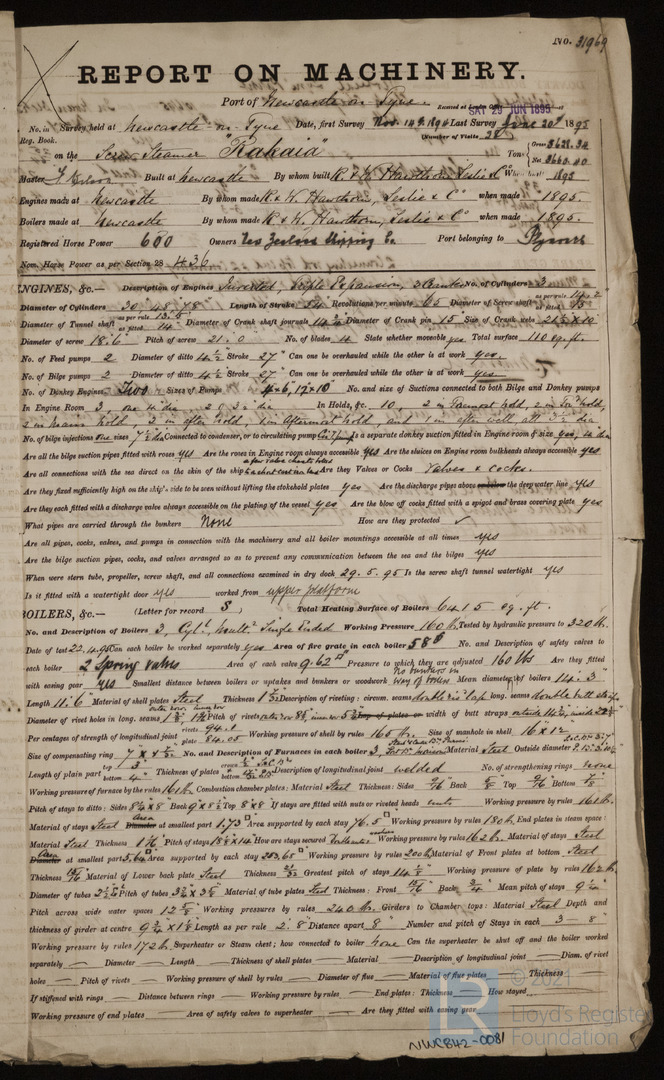 No. 31969
REPORT ON MACHINERY.
Port of Newcastle-on-Tyne
SAT 29 JUN 1895
No. in Survey held at Newcastle-on-Tyne Date, first Survey Nov. 14th 1894 Last Survey June 20th 1895
Reg. Book. (Number of Visits 38)
on the Screw Steamer "Rakaia" Tons Gross 5628.34 Net 3660.40
Master F. Built at Newcastle By whom built R & W. Hawthorn, Leslie & Co When built 1895
Engines made at Newcastle By whom made R & W. Hawthorn, Leslie & Co when made 1895.
Boilers made at Newcastle By whom made R & W. Hawthorn, Leslie & Co when made 1895.
Registered Horse Power 600 Owners New Zealand Shipping Co Port belonging to Plymouth
Nom. Horse Power as per Section 28 436
ENGINES, &c.— Description of Engines Inverted, Triple Expansion, 3 Cranks No. of Cylinders 3
Diameter of Cylinders 30. 48. 78 Length of Stroke 54 Revolutions per minute 65 Diameter of Screw shaft as per rule 14.2 as fitted 15
Diameter of Tunnel shaft as per rule 13.5 as fitted 14 Diameter of Crank shaft journals 14 3/4 Diameter of Crank pin 15 Size of Crank webs 21 1/2 x 10
Diameter of screw 18.6 Pitch of screw 21.0 No. of blades 4 State whether moveable yes Total surface 110 sq. ft.
No. of Feed pumps 2 Diameter of ditto 4 1/2 Stroke 27" Can one be overhauled while the other is at work yes.
No. of Bilge pumps 2 Diameter of ditto 4 1/2 Stroke 27" Can one be overhauled while the other is at work yes.
No. of Donkey Engines Two Sizes of Pumps 4 x 6, 17 x 10 No. and size of Suctions connected to both Bilge and Donkey pumps
In Engine Room 3, one 4 dia 2 of 3 1/2 dia In Holds, &c. 10 2 in Foremost hold, 2 in Fore hold,
2 in main hold, 2 in after hold, 1 in Aftermost hold, and 1 in after well all 3 1/2 dia
No. of bilge injections one sizes 7 1/2 dia Connected to condenser, or to circulating pump Cirl pump Is a separate donkey suction fitted in Engine room & size yes, 4 dia
Are all the bilge suction pipes fitted with roses yes Are the roses in Engine room always accessible yes Are the sluices on Engine room bulkheads always accessible yes
Are all connections with the sea direct on the skin of the ship Are they Valves or Cocks Valves & Cocks.
Are they fixed sufficiently high on the ship's side to be seen without lifting the stokehold plates yes Are the discharge pipes above the deep water line yes
Are they each fitted with a discharge valve always accessible on the plating of the vessel yes Are the blow off cocks fitted with a spigot and brass covering plate yes
What pipes are carried through the bunkers None How are they protected ✓
Are all pipes, cocks, valves, and pumps in connection with the machinery and all boiler mountings accessible at all times yes
Are the bilge suction pipes, cocks, and valves arranged so as to prevent any communication between the sea and the bilges yes
When were stern tube, propeller, screw shaft, and all connections examined in dry dock 29.5.95 Is the screw shaft tunnel watertight yes
Is it fitted with a watertight door yes worked from upper platform
BOILERS, &c.— (Letter for record S) Total Heating Surface of Boilers 6415 sq. ft.
No. and Description of Boilers 3, Cyl. Mult. Single Ended Working Pressure 160 lb Tested by hydraulic pressure to 320 lb.
Date of test 22.4.95 Can each boiler be worked separately yes Area of fire grate in each boiler 58 No. and Description of safety valves to
each boiler 2 Spring valves Area of each valve 9.62 Pressure to which they are adjusted 160 lbs Are they fitted
with easing gear yes Smallest distance between boilers or uptakes and bunkers or woodwork No bunkers in way of boilers Mean diameter of boilers 14.3
Length 11.6 Material of shell plates Steel Thickness 1 Description of riveting: circum. seams double riv. lap long. seams double butt straps
Diameter of rivet holes in long. seams Pitch of rivets or width of butt straps outside inside
Per centages of strength of longitudinal joint rivets 94.1 plate 84.05 Working pressure of shell by rules 165 lb. Size of manhole in shell 16 x 12
Size of compensating ring 7 x No. and Description of Furnaces in each boiler 3, Material Steel Outside diameter
Length of plain part top 3" bottom 4" Thickness of plates crown bottom Description of longitudinal joint welded No. of strengthening rings none
Working pressure of furnace by the rules 161 lb. Combustion chamber plates: Material Steel Thickness: Sides 9/16 Back 5/8 Top 9/16 Bottom 7/8
Pitch of stays to ditto: Sides 8 1/4 x 8 Back 9 x 8 1/2 Top 8 x 8 If stays are fitted with nuts or riveted heads nuts Working pressure by rules 161 lb.
Material of stays Steel Area at smallest part 1.73 Area supported by each stay 76.5 Working pressure by rules 180 lb. End plates in steam space:
Material Steel Thickness Pitch of stays 18 1/2 x 14 How are stays secured Working pressure by rules 162 lb. Material of stays Steel
Area at smallest part 5.64 Area supported by each stay 253.65 Working pressure by rules 200 lb Material of Front plates at bottom Steel
Thickness Material of Lower back plate Steel Thickness Greatest pitch of stays 14 Working pressure of plate by rules 162 lb
Diameter of tubes 2 1/2 Pitch of tubes 3 3/4 x 3 5/8 Material of tube plates Steel Thickness: Front Back 3/4 Mean pitch of stays 9
Pitch across wide water spaces 12 5/8 Working pressures by rules 240 lb. Girders to Chamber tops: Material Steel Depth and
thickness of girder at centre Length as per rule 2.8 Distance apart 8" Number and pitch of Stays in each 3 — 8"
Working pressure by rules 172 lb. Superheater or Steam chest; how connected to boiler None Can the superheater be shut off and the boiler worked
separately — Diameter — Length — Thickness of shell plates — Material — Description of longitudinal joint — Diam. of rivet
holes — Pitch of rivets — Working pressure of shell by rules — Diameter of flue — Material of flue plates — Thickness
If stiffened with rings — Distance between rings — Working pressure by rules — End plates: Thickness — How stayed
Working pressure of end plates — Area of safety valves to superheater — Are they fitted with easing gear
© 2021
Lloyd's Register
Foundation
NWC842-0081